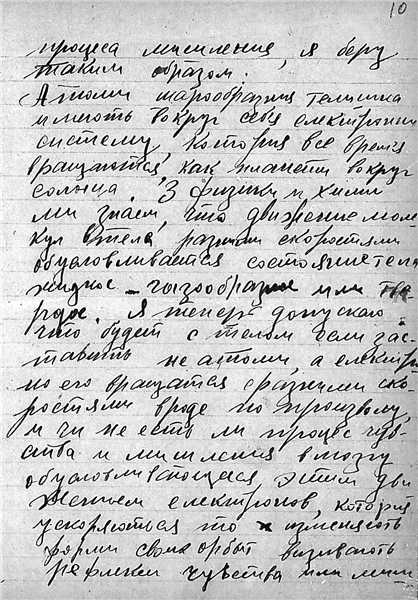 10
процеса мишления, я беру
таким образом.
Атоми шарообразния телишка
имеють вокруг себя електронн
систему, которая все время
вращаются, как планети вокруг
солнца. З физики и хими
ми знаем, что движение моле
кул в тела, разними скоростями
обусловливается состояние тела
жидкое - газообразное или тве
рдое. Я теперь допускаю
что будет с телом если зас-
тавить не атоми, а електро
но его вращатся с разними ско-
ростями вроде по произволу,
и чи не есть ли процес чув-
ства и мишления в мозгу
обусловливающиеся этим дви
жением електронов, которие
ускоряються то изменяють
форми своих орбыт визивають
рефлекси чувства или мишл